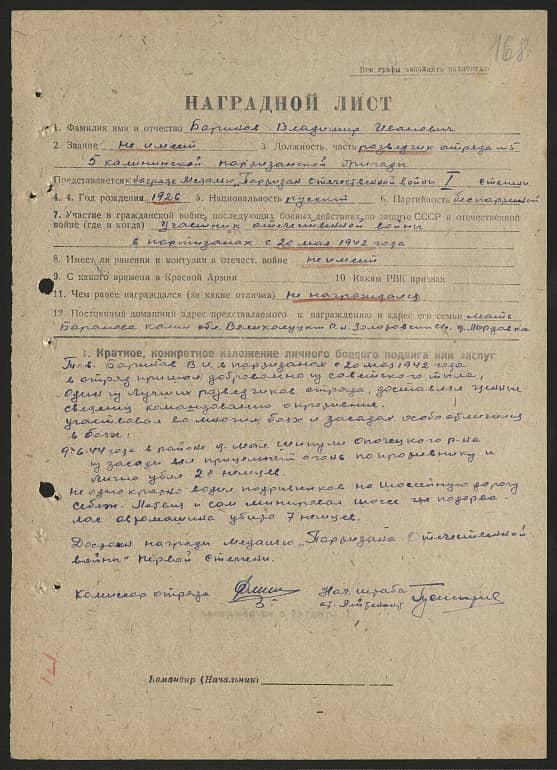 168
Все графы заполнять полностью
НАГРАДНОЙ ЛИСТ
1. Фамилия имя и отчество Баринов Владимир Иванович
2. Звание не имеет 3 Должность, часть разведчик отряда №5
5 калининской партизанской бригады
Представляется к награде Медалью „Партизан отечественной войны I степени
4. 4. Год рождения 1926 5. Национальность русский 6. Партийность беспартийный
7. Участие в гражданской войне, последующих боевых действиях по защите СССР и отечественной
войне (где и когда) Участник отечественной войны
в партизанах с 20 мая 1942 года
8. Имеет ли ранения и контузии в отечест. войне не имеет
9. С какого времени в Красной Армии 10 Каким РВК призван
11. Чем ранее награждался (за какие отличия) не награждался
12. Постоянный домашний адрес представляемого к награждению и адрес его семьи мать
Баринова калин обл. Великолукский р-н
1. Краткое, конкретное изложение личного боевого подвига или заслуг
Тов. Баринов В.И. в партизанах с 20 мая 1942 года
в отряд пришел добровольно из советского тыла,
Один из лучших разведчиков отряда, доставлял ценные
сведения командованию о противнике.
участвовал во многих боях и засадах особо отличился
в боях:
9-6-44 года в районе д. Опочецкого р-на
из засады вел прицельный огонь по противнику и
лично убил 2х немцев.
Не однократно водил подрывников на шоссейную дорогу
Себеж. и сам минировал шоссе где подорва-
лась автомашина убито 7 немцев.
Достоин награды Медалью „Партизана Отечественной
войны" первой степени.
Комиссар отряда Нач. штаба
ст. лейтенант
Командир (Начальник)